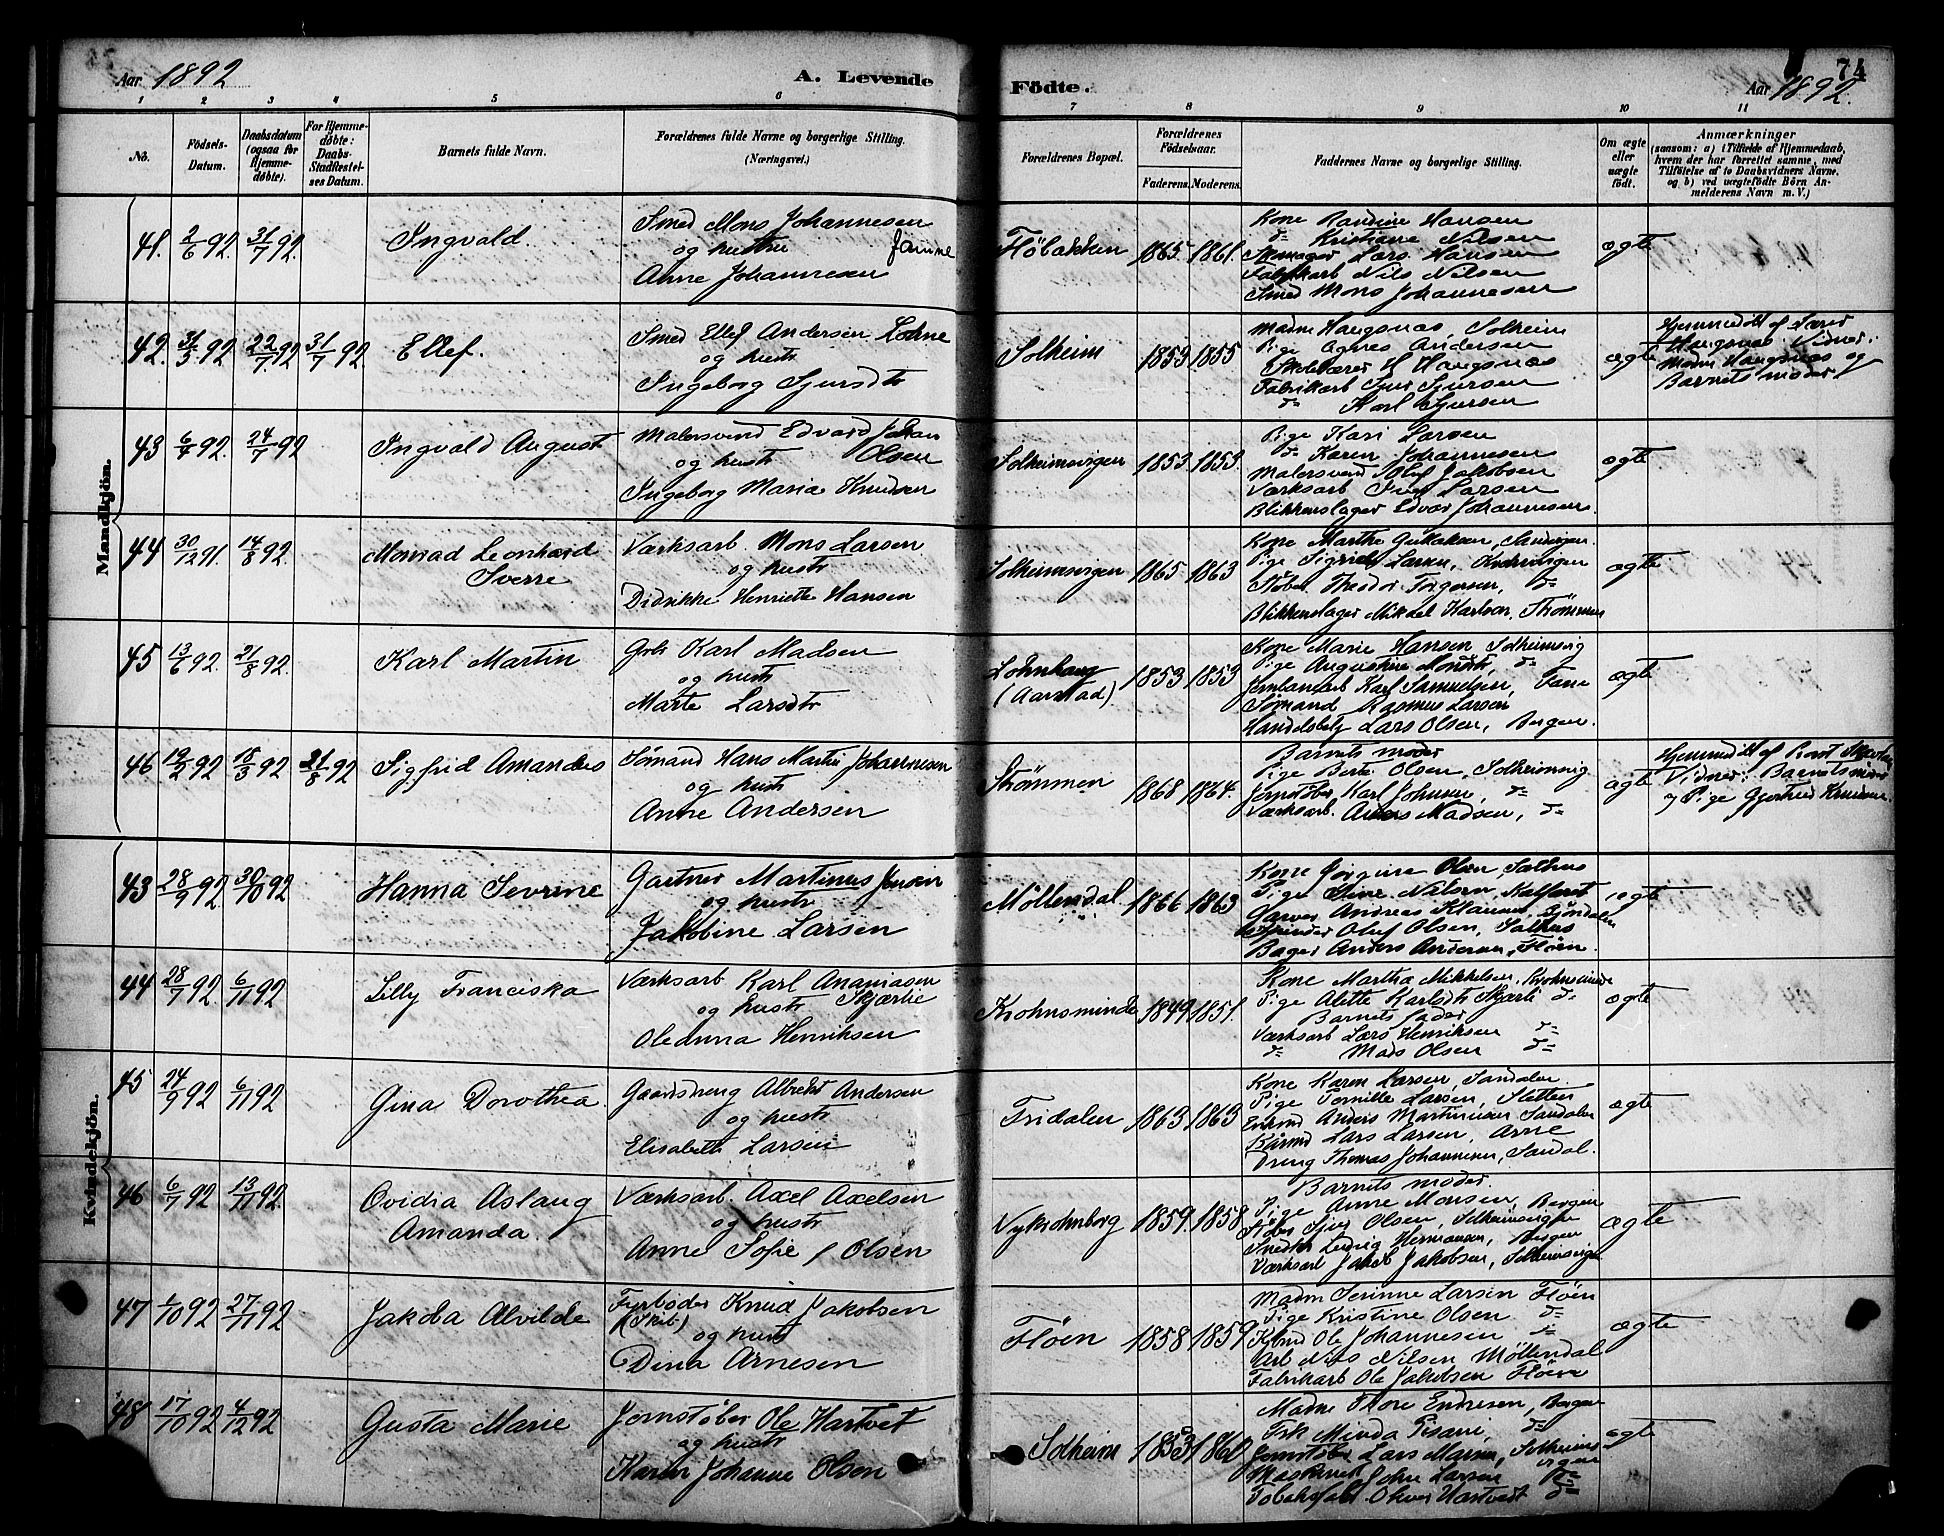 Aar 1892
A. Levende
Födte.
Aar 1892.
74
1 2 3 4 5 6 7 8 9 10 11
No.
Födsels-Datum.
Daabsdatum (ogsaa for Hjemme-döbte).
For Hjemme-døbte: Daabs-Stadfæstel-ses Datum.
Barnets fulde Navn.
Forældrenes fulde Navne og borgerlige Stilling. (Næringsvei.)
Forældrenes Bopæl.
Forældrenes Födselsaar.
Faderens. Moderens.
Faddernes Navne og borgerlige Stilling.
Om ægte eller uægte födt.
Anmærkninger
(saasom: a) i Tilfælde af Hjemmedaab,
hvem der har forrettet samme, med
Tilföielse af to Daabsvidners Navne,
og b) ved uægtefödte Börn An-
melderens Navn m. V.)
Mandkjön.
41. 2/6 92. 31/7 92. Ingvald.
Smed Mons Johannesen
og hustru Janne
Anne Johannesen
Flöbakken 1865 1861.
Kone Randine Hansen
do Kristiane Nilsen
Lars Hansen
Fabrikarb Nils Nilsen
Smed Mons Johannesen
ægte
42. 31/5 92 22/7 92 31/7 92. Ellef.
Smed Ellef Andersen Lohne
og hustr
Ingeborg Sjursdtr
Solheim 1853 1855
Madm Haugsnæs, Solheim
Pige Agnes Andersen
Skolelærer H Haugsnæs
Fabrikarb Sjur Sjursen
do Karl Sjursen
ægte
Hjemmedöbt af Lærer
Haugsnæs. Vidner:
Madm Haugsnæs og
Barnets moder
43 6/4 92. 24/7 92 Ingvald August
Malersvend Edvard Johan
og hustr Olsen
Ingeborg Maria Knudsen
Solheimsvigen 1853 1853.
Pige Kari Larsen
do Karen Johannesen
Malersvend Oluf Jakobsen
Værksarb Iver Larsen
Blikkenslager Edvar Johannesen
ægte
44 30/12 91. 14/8 92. Monrad Leonhard
Sverre
Værksarb. Mons Larsen
og hustr
Didrikke Henriette Hansen
Solheimsvigen 1865 1863
Kone Marthe Gullaksen,
Pige Sigrid Larsen,
Støber Theodor Torgersen, do
Blikkenslager Mikkel Karlsen, Strömmen
ægte
45 13/6 92. 21/8 92. Karl Martin
Grk Karl Madsen
og hustr
Marte Larsdtr
Lohnhaug
(Aarstad) 1853 1853
Kone Marie Hansen Solheimsvig
Pige Augustine Monsdtr, do
Jernbanearb Karl Samuelsen, Fane
Sömand Rasmus Larsen
Handelsbetj Lars Olsen, Bergen.
ægte
46 19/2 92 18/3 92 21/8 92 Sigfrid Amandus
Sömand Hans Martin Johannesen
og hustr
Anne Andersen
Strömmen 1868 1864.
Barnets moder
Pige Berte Olsen, Solheimsvig
Jernstöber Karl Johnsen, do
Værksarb. Anders Madsen, do
ægte
Hjemmedöbt af
Vidner: Barnets moder
og Pige Gjertrud Knudsen.
Kvindekjön.
43 28/9 92 30/10 92 Hanna Severine
Gartner Martinus Jensen
og hustr
Jakobine Larsen
Möllendal 1866 1863
Kone Jörgine Olsen Salhus
Pige Sine Nilsen Kalfaret
Garver Andreas Klausen, Björndalen
Oluf Olsen, Salhus
Bager Anders Andersen, Flöen.
ægte
44 28/7 92. 6/11 92 Lilly Franciska
Værksarb Karl Ananiasen
og hustr Skjerlie
Oledina Henriksen
Krohnsminde 1849 1851.
Kone Martha Mikkelsen, Krohnsminde
Pige Alette Karlsdtr Skjerli do
Barnets fader
Værksarb Lars Henriksen do
do Mads Olsen do
ægte
45 24/9 92 6/11 92 Gina Dorothea.
Gaardsdreng Albrekt Andersen
og hustr
Elisabeth Larsen
Fridalen 1863 1863
Kone Karen Larsen, Sandalen
Pige Pernille Larsen, Sletten
Anders Martinusen Sandalen
Lars Larsen, Arne
Dreng Thomas Johannesen, Sandal.
ægte
46 6/7 92 13/11 92. Ovidia Aslaug
Amanda.
Værksarb. Axel Axelsen
og hustr
Anne Sofie Olsen
Nykrohnborg 1859. 1858
Barnets moder.
Pige Anne Monsen, Bergen
Støber Sjur Olsen, Solheimsvigen
Snedker Ludvig Hermansen, Bergen
Værksarb Jakob Jakobsen, Solheimsvigen
ægte
47 1/10 92 27/11 92 Jakoba Alvilde
Fyrböder Knud Jakobsen
(Skib) og hustr
Dina Arnesen
Flöen 1858 1859
Madm Serinne Larsen Flöen
Pige Kristine Olsen do
Ole Johannesen do
Arb Nils Nilsen Möllendal
Fabrikarb Ole Jakobsen Flöen
ægte
48 17/10 92 4/12 92 Gusta Marie
Jernstöber Ole Hartvet
og hustr
Karen Johanne Olsen
Solheim 1853 1860
Madm Thore Endresen, Bergen
Frk Minda Pisani, do
Jernstöber Lars Monsen, Solheimsvigen
Maskinist John Larsen do
Tobaksfabr Oliver Hartvedt do
ægte